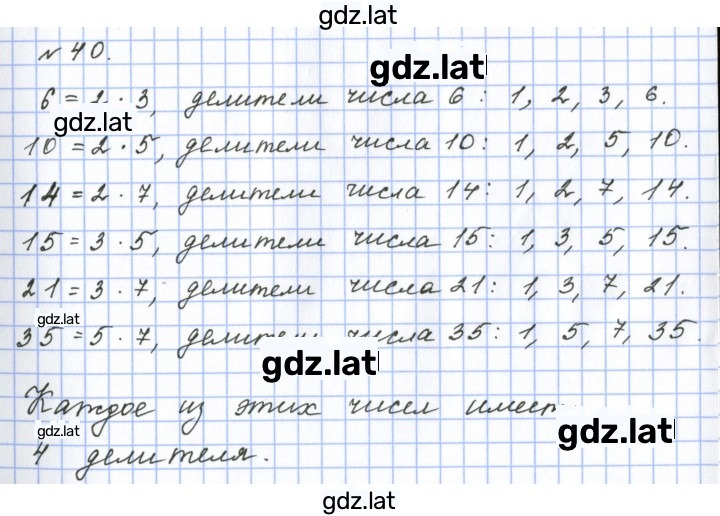 gdz.lat
№ 40.
gdz.lat
6 = 2 · 3, делители числа 6 : 1, 2, 3, 6.
gdz.lat
10 = 2 · 5, делители числа 10 : 1, 2, 5, 10.
14 = 2 · 7, делители числа 14 : 1, 2, 7, 14.
15 = 3 · 5, делители числа 15 : 1, 3, 5, 15.
21 = 3 · 7, делители числа 21 : 1, 3, 7, 21.
gdz.lat
35 = 5 · 7, делители числа 35 : 1, 5, 7, 35.
gdz.lat
Каждое из этих чисел имеет
gdz.lat
gdz.lat
4 делителя.
gdz.lat